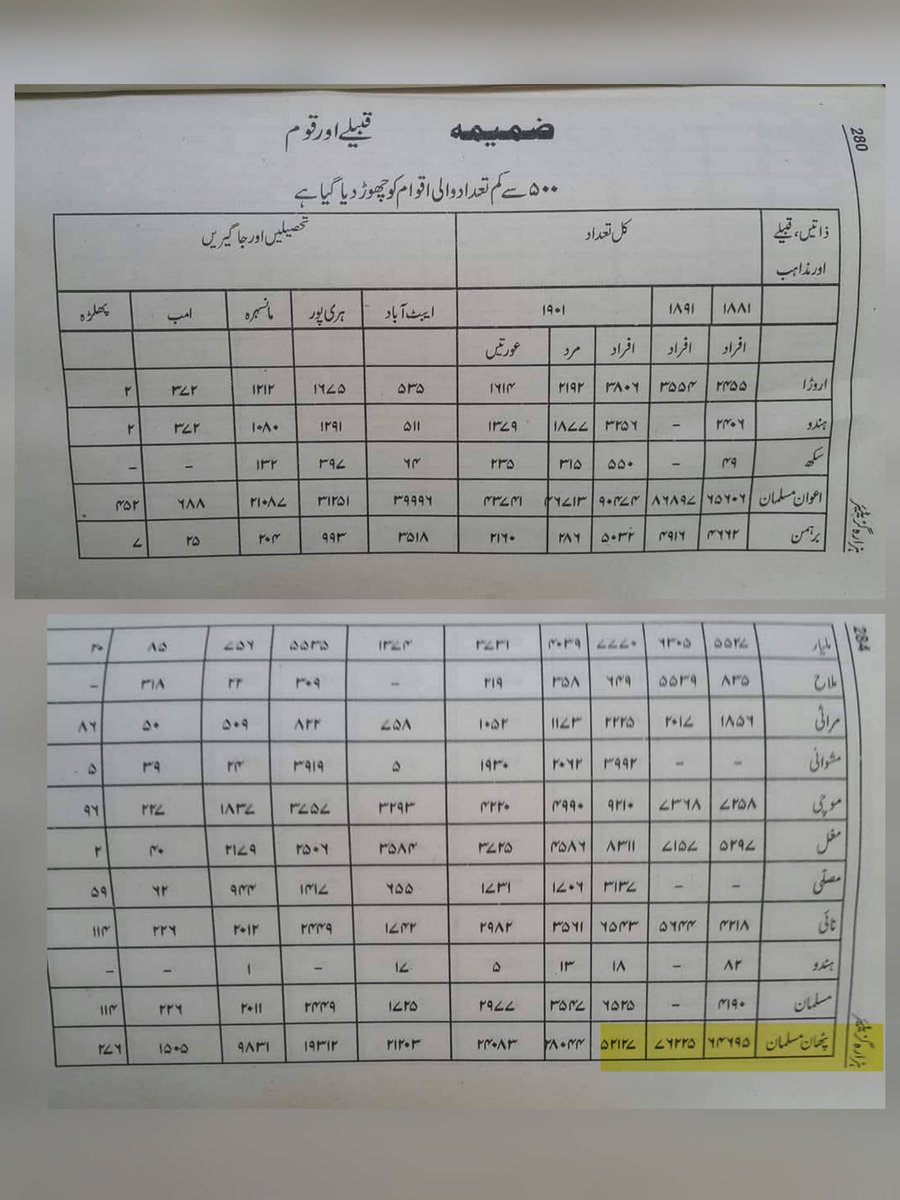 280
ضمیمہ قبیلے اور قوم
۵۰۰ سے کم تعداد والی اقوام کو چھوڑ دیا گیا ہے
ذاتیں، قبیلے اور مذاہب کل تعداد تحصیلیں اور جاگیریں
۱۸۸۱ ۱۸۹۱ ۱۹۰۱ ایبٹ آباد ہری پور مانسہرہ امب پھلڑہ
افراد افراد افراد مرد عورتیں
اروڑا ۲۴۵۵ ۳۵۵۴ ۳۸۰۶ ۲۱۹۲ ۱۶۱۴ ۵۳۵ ۱۶۷۵ ۱۲۱۲ ۳۷۲ ۲
ہندو ۲۴۰۶ - ۳۲۵۶ ۱۸۷۷ ۱۳۷۹ ۵۱۱ ۱۲۹۱ ۱۰۸۰ ۳۷۲ ۲
سکھ ۴۹ - ۵۵۰ ۳۱۵ ۲۳۵ ۶۴ ۳۹۷ ۱۳۲ - -
اعوان مسلمان ۶۵۶۰۶ ۸۶۸۹۷ ۹۰۴۷۴ ۴۶۷۱۳ ۴۳۷۴۱ ۳۹۹۹۶ ۳۱۲۵۱ ۲۱۰۸۷ ۶۸۸ ۴۵۲
برہمن ۴۶۶۲ ۴۹۱۶ ۵۰۳۲ ۲۸۶ ۲۱۶۰ ۳۵۱۸ ۹۹۳ ۲۰۴ ۲۵ ۷
ہزارہ گزیٹیئر
284
ملیار ۵۵۲۷ ۶۳۰۵ ۷۷۷۰ ۴۰۳۹ ۳۷۳۱ ۱۳۷۴ ۵۵۳۵ ۷۵۶ ۸۵ ۲۰
ملاح ۸۳۵ ۵۵۳۹ ۶۴۹ ۳۵۸ ۲۱۹ - ۳۰۹ ۲۲ ۳۱۸ -
مراثی ۱۸۵۶ ۲۰۱۷ ۲۲۲۵ ۱۱۷۳ ۱۰۵۲ ۷۵۸ ۸۲۲ ۵۰۹ ۵۰ ۸۶
مشوانی - - ۳۹۹۲ ۲۰۶۲ ۱۹۳۰ ۵ ۳۹۱۹ ۲۴ ۳۹ ۵
موچی ۷۲۵۸ ۷۳۶۸ ۹۲۱۰ ۴۹۹۰ ۴۲۲۰ ۳۲۹۳ ۳۷۵۷ ۱۸۳۷ ۲۲۷ ۹۶
مغل ۵۲۹۷ ۷۱۵۷ ۸۳۱۱ ۴۵۸۶ ۳۷۲۵ ۳۵۸۴ ۲۵۰۶ ۲۱۷۹ ۴۰ ۲
مصلی - - ۳۱۳۷ ۱۷۰۶ ۱۷۳۱ ۶۵۵ ۱۴۱۷ ۹۴۴ ۶۲ ۵۹
نائی ۴۲۱۸ ۵۶۴۴ ۶۵۴۳ ۳۵۶۱ ۲۹۸۲ ۱۷۴۲ ۲۴۴۹ ۲۰۱۲ ۲۲۶ ۱۱۴
ہندو ۸۲ - ۱۸ ۱۳ ۵ ۱۷ - ۱ - -
مسلمان ۴۱۹۰ - ۶۵۲۵ ۳۵۴۷ ۲۹۷۷ ۱۷۲۵ ۲۴۴۹ ۲۰۱۱ ۲۲۶ ۱۱۴
پٹھان مسلمان ۶۴۶۹۵ ۷۶۲۲۵ ۵۲۱۲۷ ۲۸۰۴۴ ۲۴۰۸۳ ۲۱۲۰۳ ۱۹۳۱۲ ۹۸۳۱ ۱۵۰۵ ۲۷۶
ہزارہ گزیٹیئر